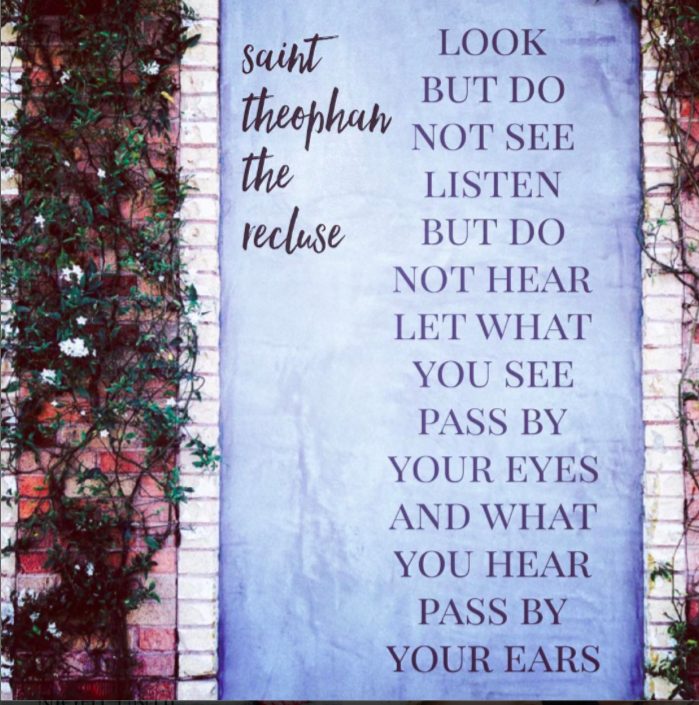 saint
theophan
the
recluse
LOOK
BUT DO
NOT SEE
LISTEN
BUT DO
NOT HEAR
LET WHAT
YOU SEE
PASS BY
YOUR EYES
AND WHAT
YOU HEAR
PASS BY
YOUR EARS